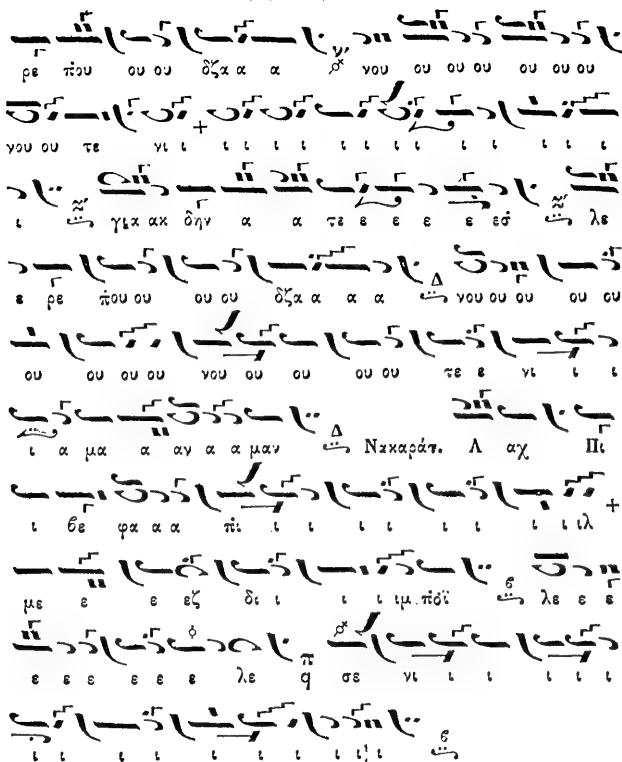 ρε π̇ου ου ου δζα α α νου ου ου ου ου ου ου
νου ου τε νι ι ι ι ι ι ι ι ι ι ι ι ι
ι για ακ δην α α τε ε ε ε ε εσ̇ λε
ε ρε π̇ου ου ου ου δζα α α α Δ νου ου ου ου ου
ου ου ου ου νου ου ου ου ου τε ε νι ι ι
ι α μα α αν α α μαν Δ Νακαράτ. Α αχ Πι
ι βε φα α α π̇ι ι ι ι ι ι ι ι ι ιλ
με ε ε εζ δι ι ι ι ιμ π̇όϊ λε ε ε
ε ε ε ε ε ε λε σε νι ι ι ι ι ι
ι ι ι ι ι ι ι ι ι ι